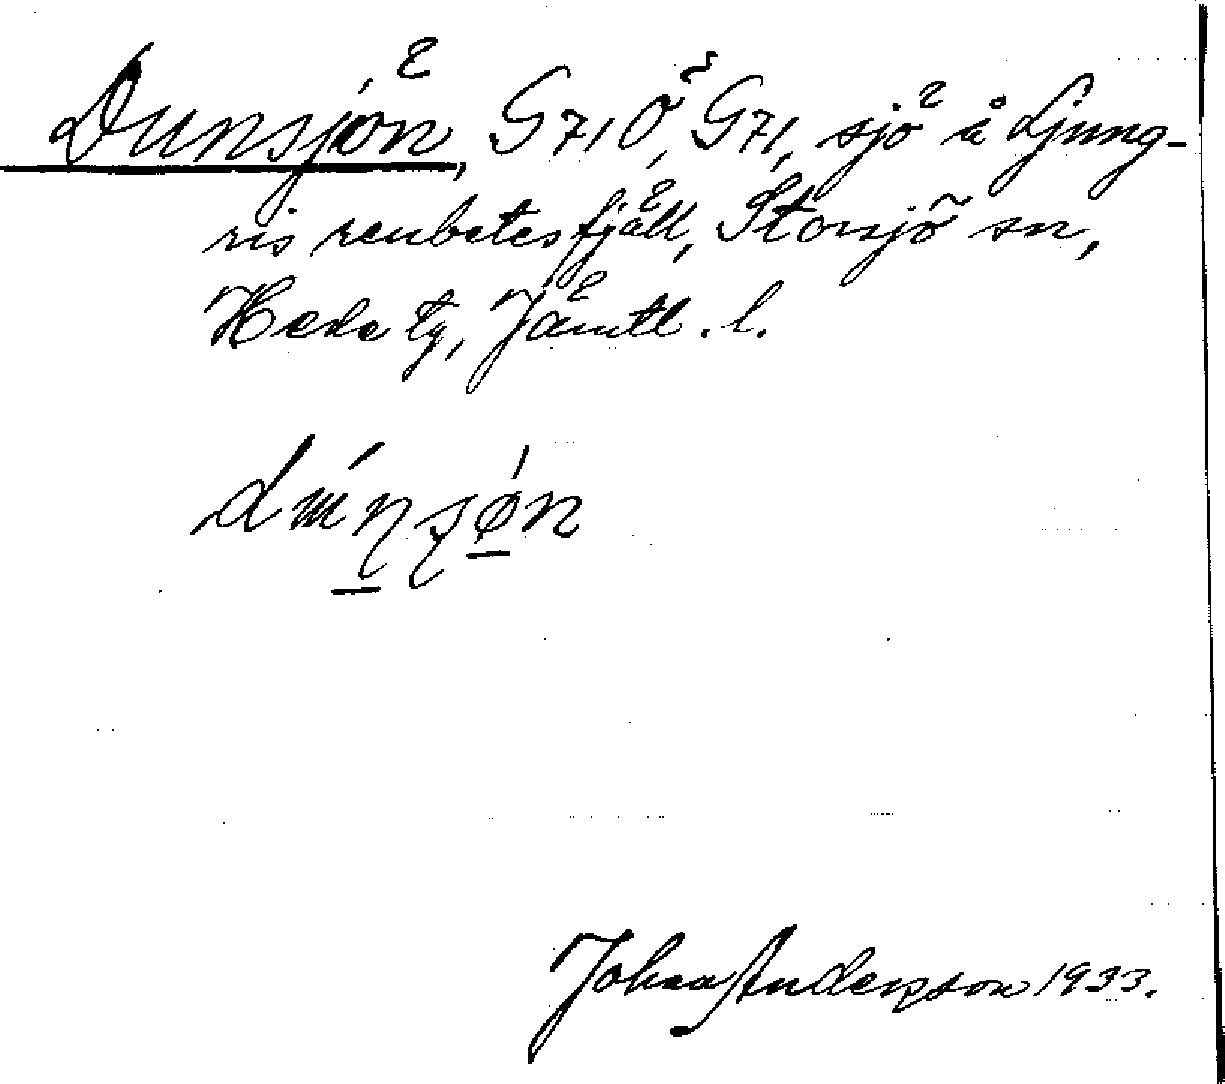 Dunsjön, G71Ö, G71, sjö å Ljung-
ris renbetesfjäll, Storsjö sn,
Hede tg, Jämtl. l.
Johan Anderson 1933.